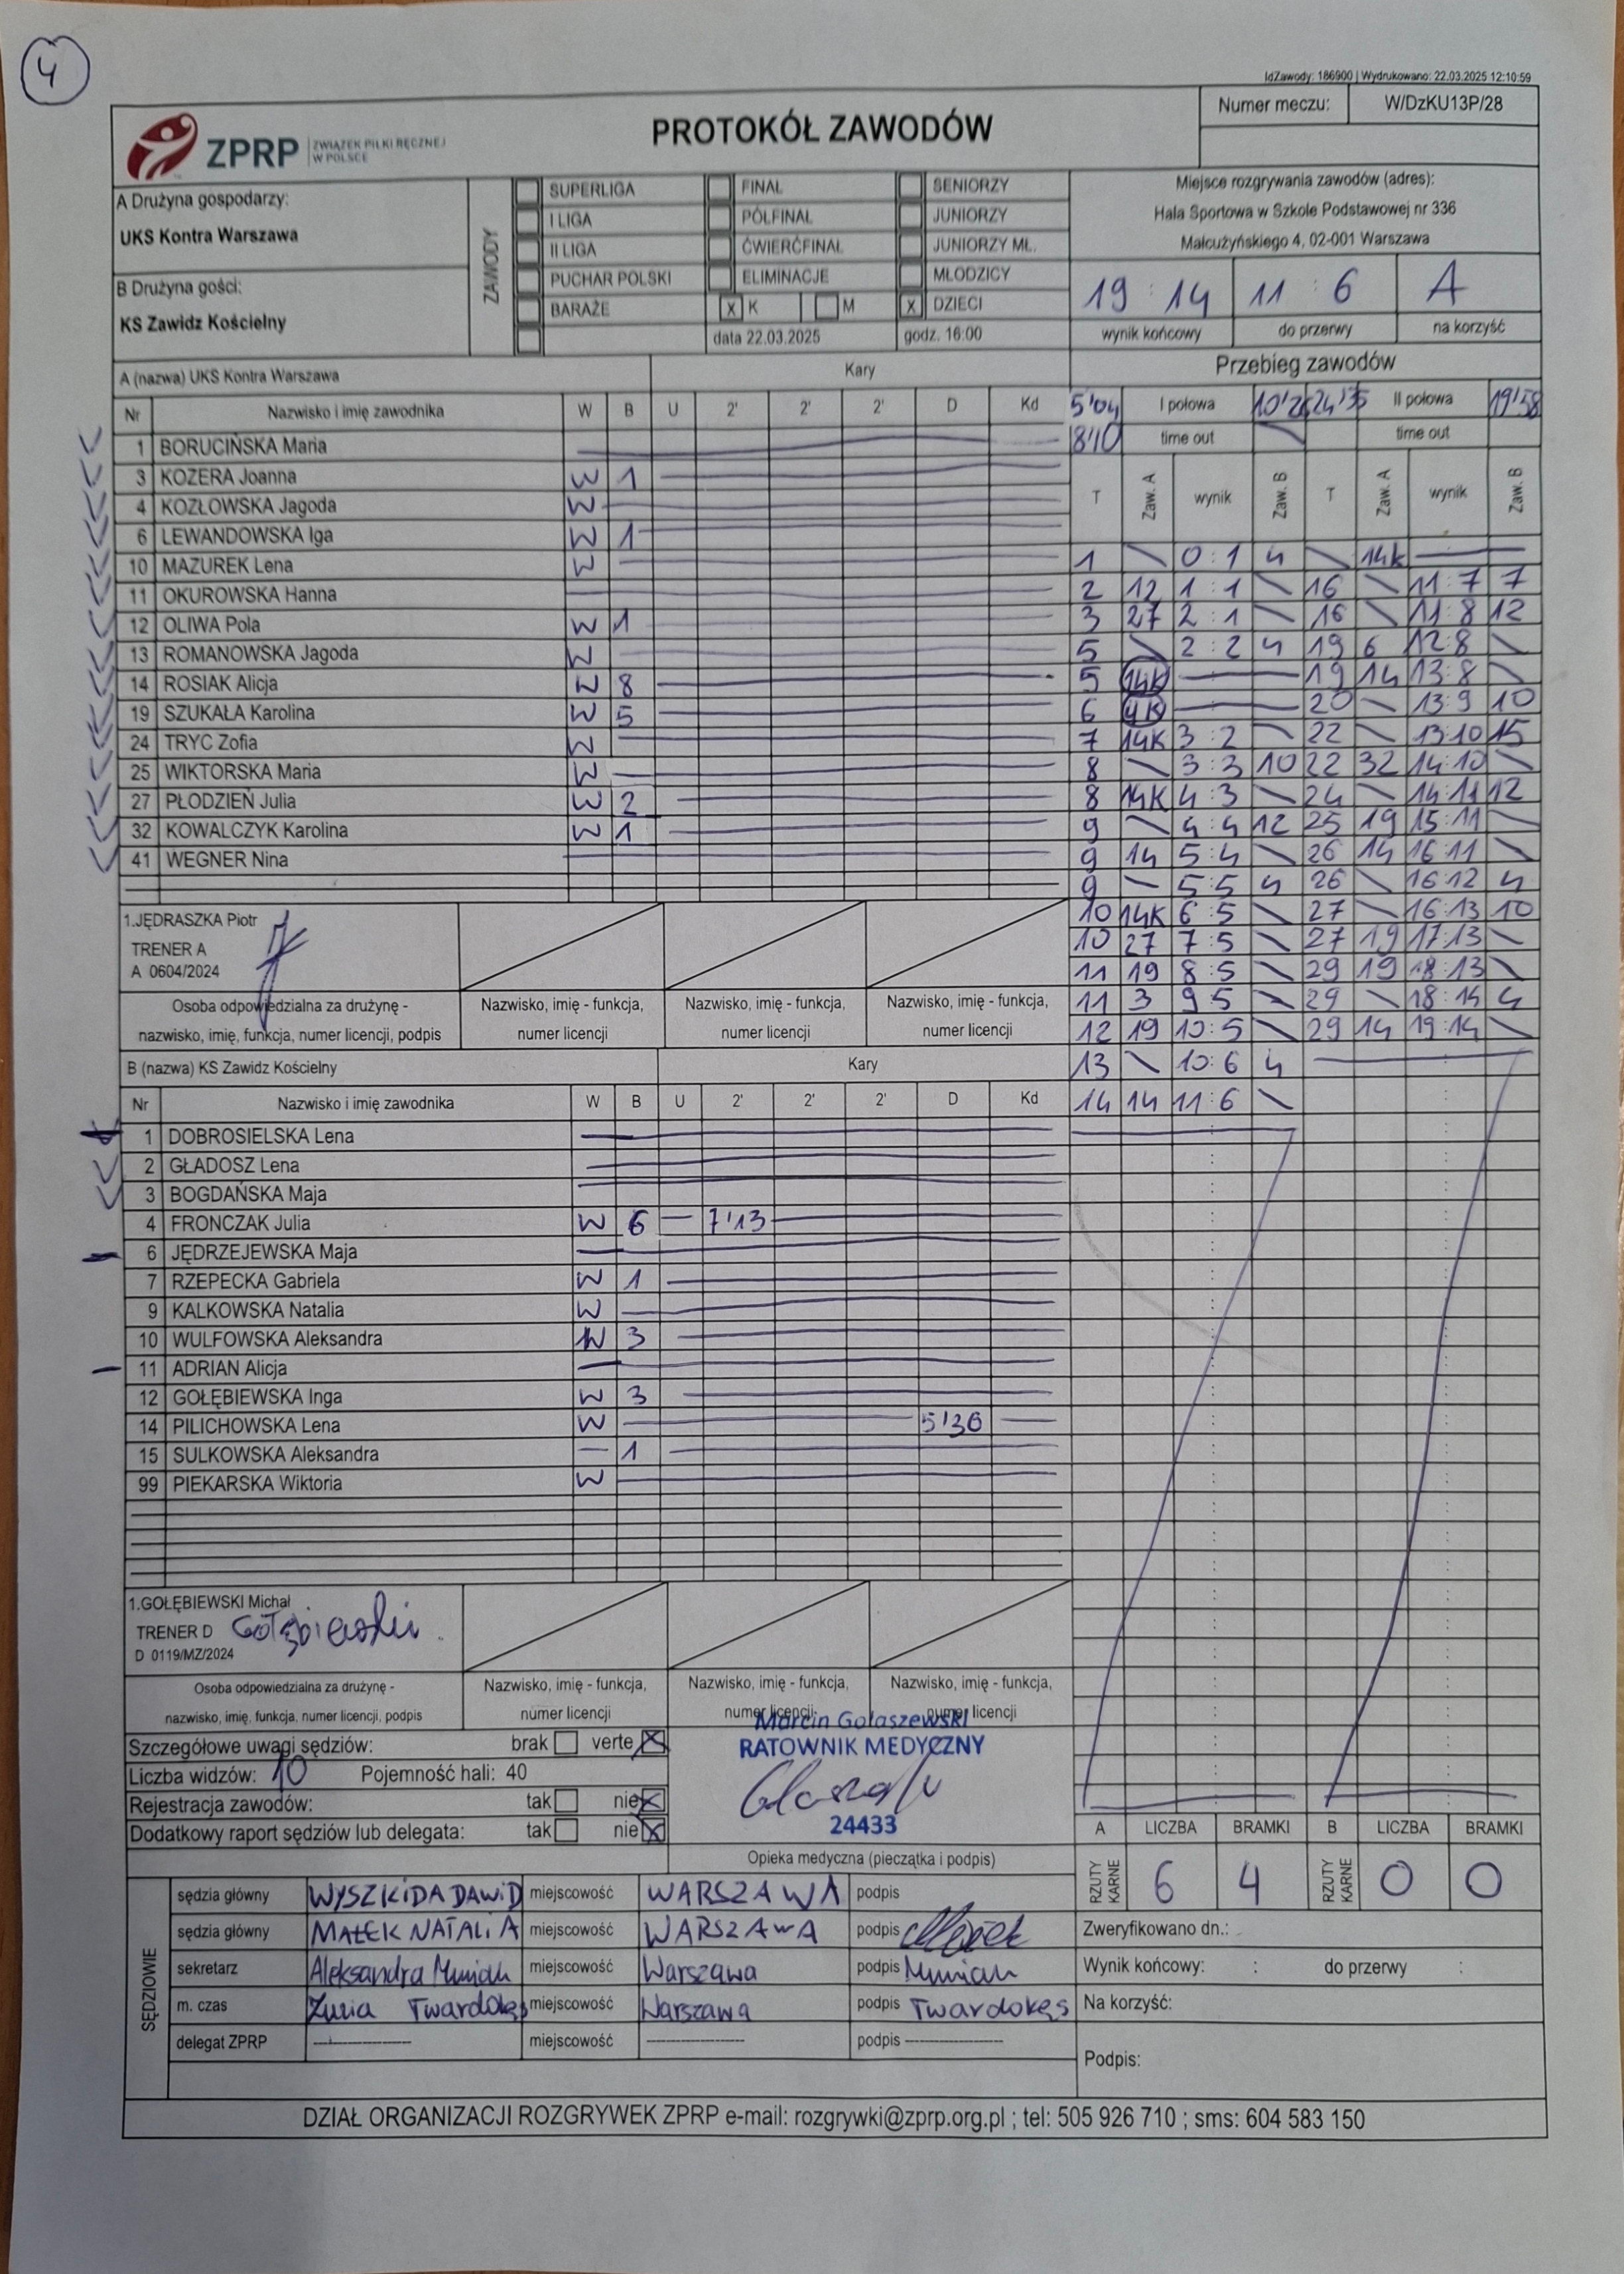 4
IdZawody: 186900 | Wydrukowano: 22.03.2025 12:10:59
ZPRP ZWIĄZEK PIŁKI RĘCZNEJ W POLSCE
PROTOKÓŁ ZAWODÓW
Numer meczu: W/DzKU13P/28
A Drużyna gospodarzy:
UKS Kontra Warszawa
B Drużyna gości:
KS Zawidz Kościelny
ZAWODY
SUPERLIGA FINAŁ SENIORZY
I LIGA PÓŁFINAŁ JUNIORZY
II LIGA ĆWIERĆFINAŁ JUNIORZY MŁ.
PUCHAR POLSKI ELIMINACJE MŁODZICY
BARAŻE x K M x DZIECI
data 22.03.2025 godz. 16:00
Miejsce rozgrywania zawodów (adres):
Hala Sportowa w Szkole Podstawowej nr 336
Małcużyńskiego 4, 02-001 Warszawa
19 : 14 11 : 6 A
wynik końcowy do przerwy na korzyść
A (nazwa) UKS Kontra Warszawa Kary
Nr Nazwisko i imię zawodnika W B U 2' 2' 2' D Kd
1 BORUCIŃSKA Maria
3 KOZERA Joanna W 1
4 KOZŁOWSKA Jagoda W
6 LEWANDOWSKA Iga W 1
10 MAZUREK Lena W
11 OKUROWSKA Hanna
12 OLIWA Pola W 1
13 ROMANOWSKA Jagoda W
14 ROSIAK Alicja W 8
19 SZUKAŁA Karolina W 5
24 TRYC Zofia W
25 WIKTORSKA Maria W
27 PŁODZIEŃ Julia W 2
32 KOWALCZYK Karolina W 1
41 WEGNER Nina
1.JĘDRASZKA Piotr
TRENER A
A 0604/2024
Osoba odpowiedzialna za drużynę - nazwisko, imię, funkcja, numer licencji, podpis
Nazwisko, imię - funkcja, numer licencji
Nazwisko, imię - funkcja, numer licencji
Nazwisko, imię - funkcja, numer licencji
B (nazwa) KS Zawidz Kościelny Kary
Nr Nazwisko i imię zawodnika W B U 2' 2' 2' D Kd
1 DOBROSIELSKA Lena
2 GŁADOSZ Lena
3 BOGDAŃSKA Maja
4 FRONCZAK Julia W 6 7'13
6 JĘDRZEJEWSKA Maja
7 RZEPECKA Gabriela W 1
9 KALKOWSKA Natalia W
10 WULFOWSKA Aleksandra W 3
11 ADRIAN Alicja
12 GOŁĘBIEWSKA Inga W 3
14 PILICHOWSKA Lena W 5'36
15 SULKOWSKA Aleksandra 1
99 PIEKARSKA Wiktoria W
1.GOŁĘBIEWSKI Michał
TRENER D Gołębiewski
D 0119/MZ/2024
Osoba odpowiedzialna za drużynę - nazwisko, imię, funkcja, numer licencji, podpis
Nazwisko, imię - funkcja, numer licencji
Nazwisko, imię - funkcja, numer licencji
Nazwisko, imię - funkcja, numer licencji
Przebieg zawodów
5'04 I połowa 24'35 II połowa 19'58
8'10 time out time out
T Zaw. A wynik Zaw. B T Zaw. A wynik Zaw. B
1 0 : 1 4 14k
2 12 1 : 1 16 11 : 7 7
3 27 2 : 1 16 11 : 8 12
5 2 : 2 4 19 6 12:8
5 14K 19 14 13:8
6 4K 20 13:9 10
7 14K 3 : 2 22 13:10 15
8 3 : 3 10 22 32 14:10
8 14K 4 : 3 24 14:11 12
9 4 : 4 12 25 19 15:11
9 14 5:4 26 14 16:11
9 5:5 4 26 16:12 4
10 14K 6 : 5 27 16:13 10
10 27 7:5 27 19 17:13
11 19 8:5 29 19 18:13
11 3 9 5 29 18:14 4
12 19 10:5 29 14 19:14
13 10:6 4
14 14 11:6
Szczegółowe uwagi sędziów: brak verte X
Liczba widzów: 10 Pojemność hali: 40
Rejestracja zawodów: tak nie X
Dodatkowy raport sędziów lub delegata: tak nie X
Marcin Gołaszewski
RATOWNIK MEDYCZNY
24433
Opieka medyczna (pieczątka i podpis)
A LICZBA BRAMKI B LICZBA BRAMKI
RZUTY KARNE 6 4 RZUTY KARNE 0 0
SĘDZIOWIE
sędzia główny WYSZKIDA DAWID miejscowość WARSZAWA podpis
sędzia główny MAŁEK NATALIA miejscowość WARSZAWA podpis Małek
sekretarz Aleksandra miejscowość Warszawa podpis
m. czas Zuzia Twardokęs miejscowość Warszawa podpis Twardokęs
delegat ZPRP miejscowość podpis
Zweryfikowano dn.:
Wynik końcowy: : do przerwy :
Na korzyść:
Podpis:
DZIAŁ ORGANIZACJI ROZGRYWEK ZPRP e-mail: rozgrywki@zprp.org.pl ; tel: 505 926 710 ; sms: 604 583 150